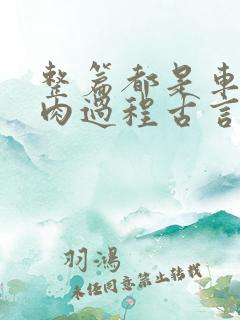 整篇都是車
肉過程古言
羽鴻
未任同意禁止转载